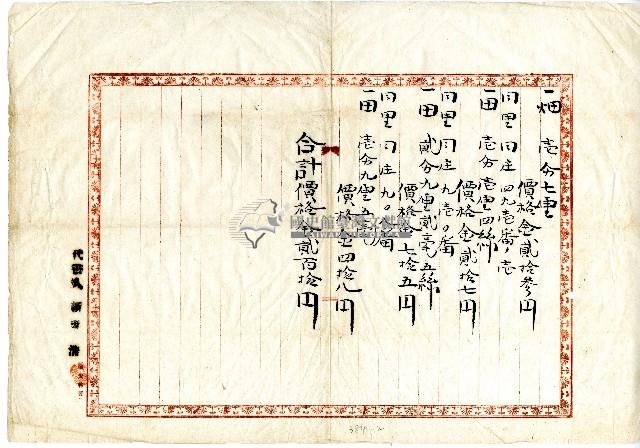 一畑 壱分七厘
價格金貳拾参円
同里同庄四九壱番ノ壱
一田 壱分壱厘四絲
價格金貳拾七円
同里同庄九壱〇番
一田 貳分九厘貳毫五絲
價格金七拾五円
同里同庄九〇番
一田 壱分九厘五
價格金四拾八円
合計價格金貳百拾円
代書人
國史館臺灣文獻館